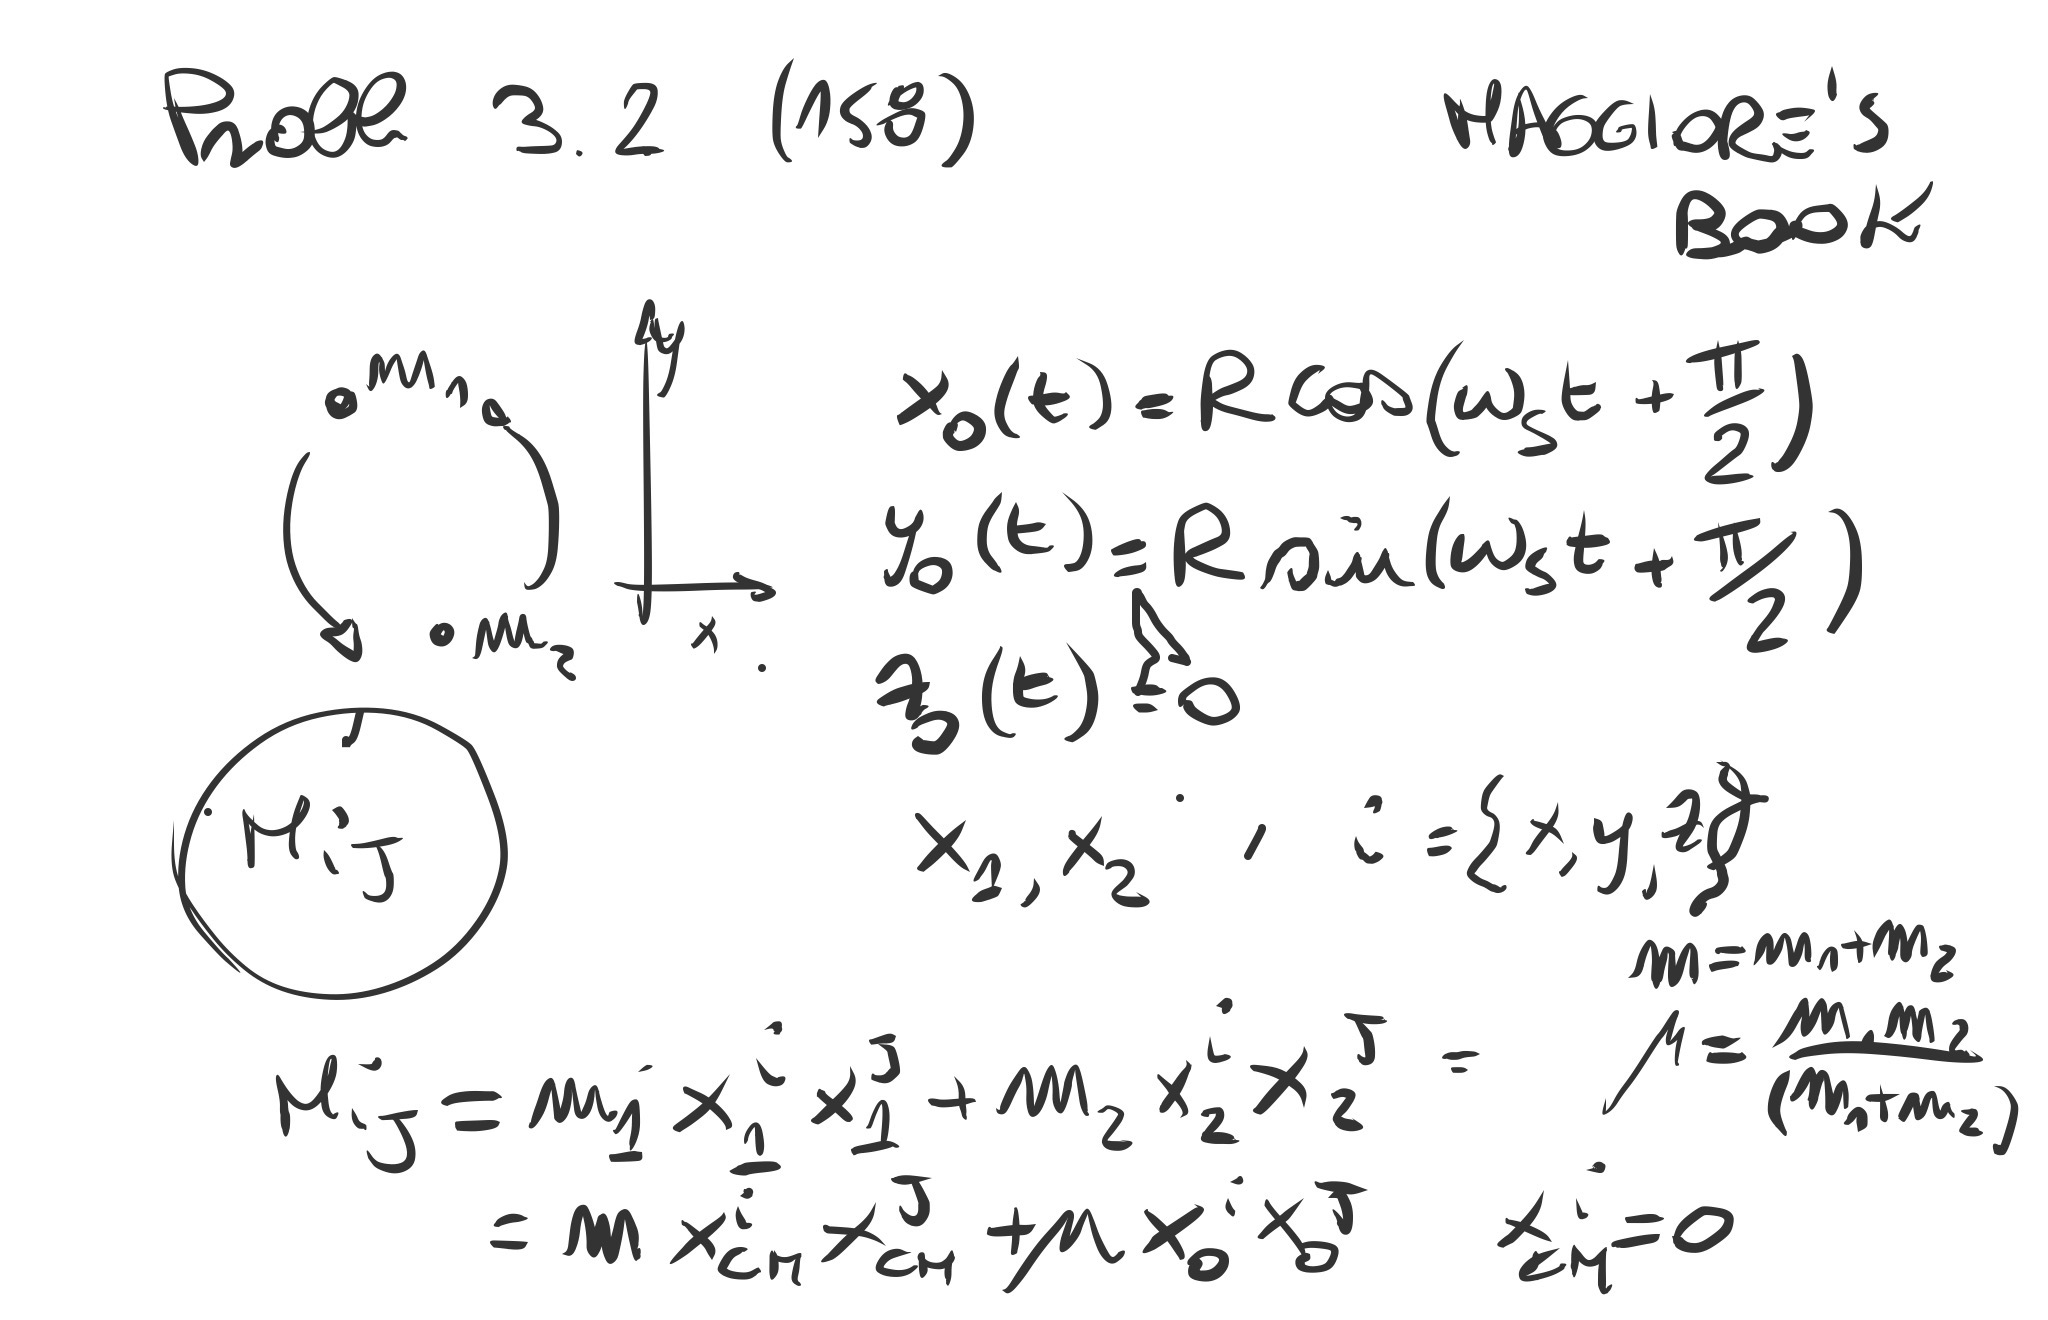 Probl 3.2 (158)
MAGGIORE'S
BOOK
m₁
y
x
m₂
x₀(t) = R cos(ωₛt + π/2)
y₀(t) = R sin(ωₛt + π/2)
z₀(t) = 0
x₁, x₂ , i = {x, y, z}
M_ij
m = m₁ + m₂
μ = m₁m₂/(m₁+m₂)
M_ij = m₁ x₁^i x₁^j + m₂ x₂^i x₂^j =
= m x_CM^i x_CM^j + μ x₀^i x₀^j x_CM^i = 0